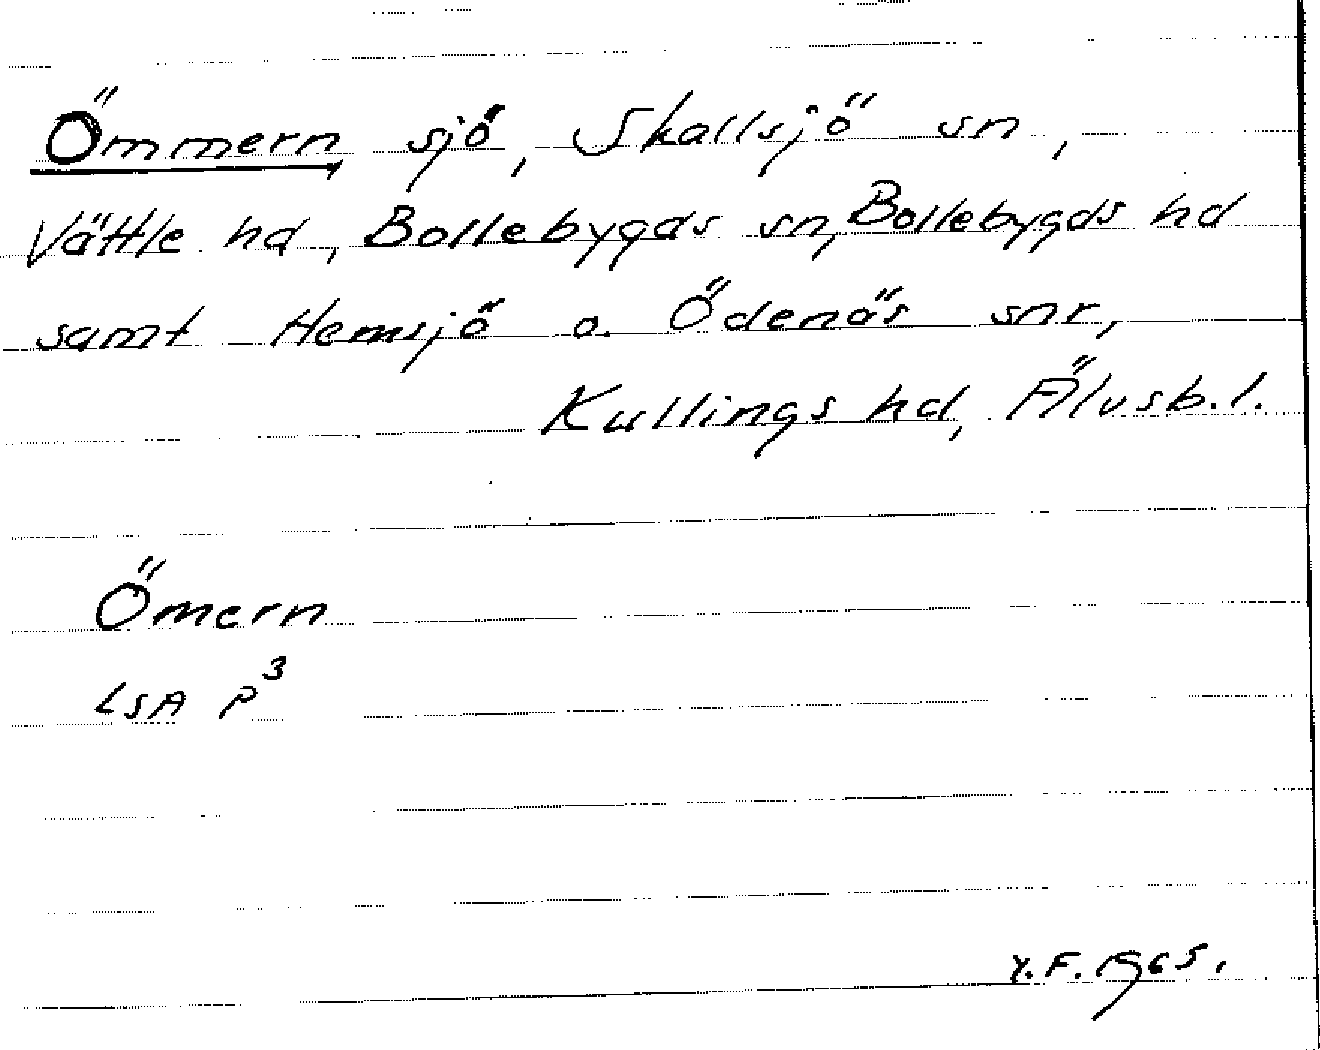 Ömmern sjö, Skallsjö sn,
Vättle hd, Bollebygds sn, Bollebygds hd
samt Hemsjö o. Ödenäs snr,
Kullings hd, Älvsb. l.
Ömern
LSA P³
Y.F. 1965.